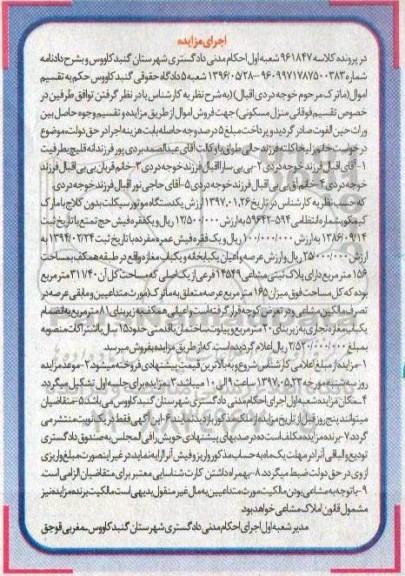 اجرای مزایده
در پرونده کلاسه ۹۶۱۸۴۷ شعبه اول احکام مدنی دادگستری شهرستان گنبدکاووس و بشرح دادنامه
شماره ۹۶۰۹۹۷۱۷۸۷۵۰۰۳۸۳-۱۳۹۶/۰۵/۲۸ شعبه ۵ دادگاه حقوقی گنبدکاووس حکم به تقسیم
اموال (ماترک مرحوم خوجه دردی اقبال) (به شرح نظریه کارشناس با در نظر گرفتن توافق طرفین در
خصوص تقسیم فوقانی منزل مسکونی) جهت فروش اموال از طریق مزایده و تقسیم وجوه حاصل بین
وراث حین الفوت صادر گردید و پرداخت مبلغ ۵ درصد وجه حاصله بابت هزینه اجرا در حق دولت موضوع
درخواست خانم لیخا کلته فرزند حاجی طواق با وکالت آقای عبدالصمد بردی پور فرزند انه قلیچ بطرفیت
۱-آقای اقبال فرزند خوجه دردی ۲-بی بی سارا اقبال فرزند خوجه دردی ۳-خانم قربان بی بی اقبال فرزند
خوجه دردی ۴-خانم بی بی اقبال فرزند خوجه دردی ۵-آقای حاجی نور اقبال فرزند خوجه دردی
که حسب نظریه کارشناس در تاریخ ۱۳۹۷،۰۱،۲۶ ارزش یکدستگاه موتورسیکلت بدون کلاج با مارک
کبیمکو بشماره انتظامی ۵۹۴-۵۹۶۴۲ به ارزش ۱۲/۵۰۰/۰۰۰ ریال و یکفقره فیش حج تمتع با تاریخ ثبت
۱۳۸۶/۰۹/۱۴ به ارزش ۱۰۰/۰۰۰/۰۰۰ ریال و یک فقره فیش عمره مفرده با تاریخ ثبت ۱۳۹۴/۰۲/۲۴ به
ارزش ۲۵/۰۰۰/۰۰۰ ریال و ارزش عرصه و اعیان یکبابخانه و یکباب مغازه واقع در طبقه همکف بمساحت
۱۵۶ متر مربع دارای پلاک ثبتی مشاعی ۱۴۵۴۹ فرعی از یک اصلی که مساحت کل آن ۳۱۷/۴۰ متر مربع
بوده که کل مساحت فوق میزان ۱۶۵ متر مربع عرصه متعلق به ماترک (مورث متداعیین و مابقی عرصه در
تصرف مالکین مشاعی و در تعرض کوچه قرار گرفته است و اعیانی همکف به زیربنای ۸۱ متر مربع به انضمام
یکباب مغازه تجاری به زیربنای ۲۰ متر مربع و پیلوت ساختمان با قدمتی حدود ۱۵ سال با اشتراکات منصوبه
بمبلغ ۲/۵۲۰/۰۰۰/۰۰۰ ریال اعلام گردیده است. که از طریق مزایده بفروش میرسد.
۱-مزایده از مبلغ اعلامی کارشناسی شروع و به بالاترین قیمت پیشنهادی فروخته میشود ۲-موعد مزایده
روز سه شنبه مورخه ۱۳۹۷،۰۵،۲۳ ساعت ۹ الی ۱۰ میباشد ۳-مزایده برای جلسه اول تشکیل میگردد
۴-مکان مزایده شعبه اول اجرای احکام مدنی دادگستری شهرستان گنبدکاووس می باشد ۵-متقاضیان
میتوانند پنج روز قبل از تاریخ مزایده از ملک مذکور بازدید نمایند ۶-این آگهی فقط در یک نوبت منتشر می
گردد ۷-برنده مزایده مکلف است ده درصد بهای پیشنهادی خویش را فی المجلس به صندوق دادگستری
تودیع و الباقی آنرا در مهلت یک ماه به حساب مذکور واریز و فیش آنرا ارایه نماید در غیر اینصورت مبلغ واریزی
از وی در حق دولت ضبط میگردد ۸-بهمراه داشتن کارت شناسایی معتبر برای متقاضیان الزامی است.
۹-با توجه به مشاعی بودن مالکیت مورث متداعیین به مال غیر منقول بدیهی است مالکیت برنده مزایده نیز
مشمول قانون املاک مشاعی خواهد بود.
مدیر شعبه اول اجرای احکام مدنی دادگستری شهرستان گنبدکاووس-مغربی قوجق